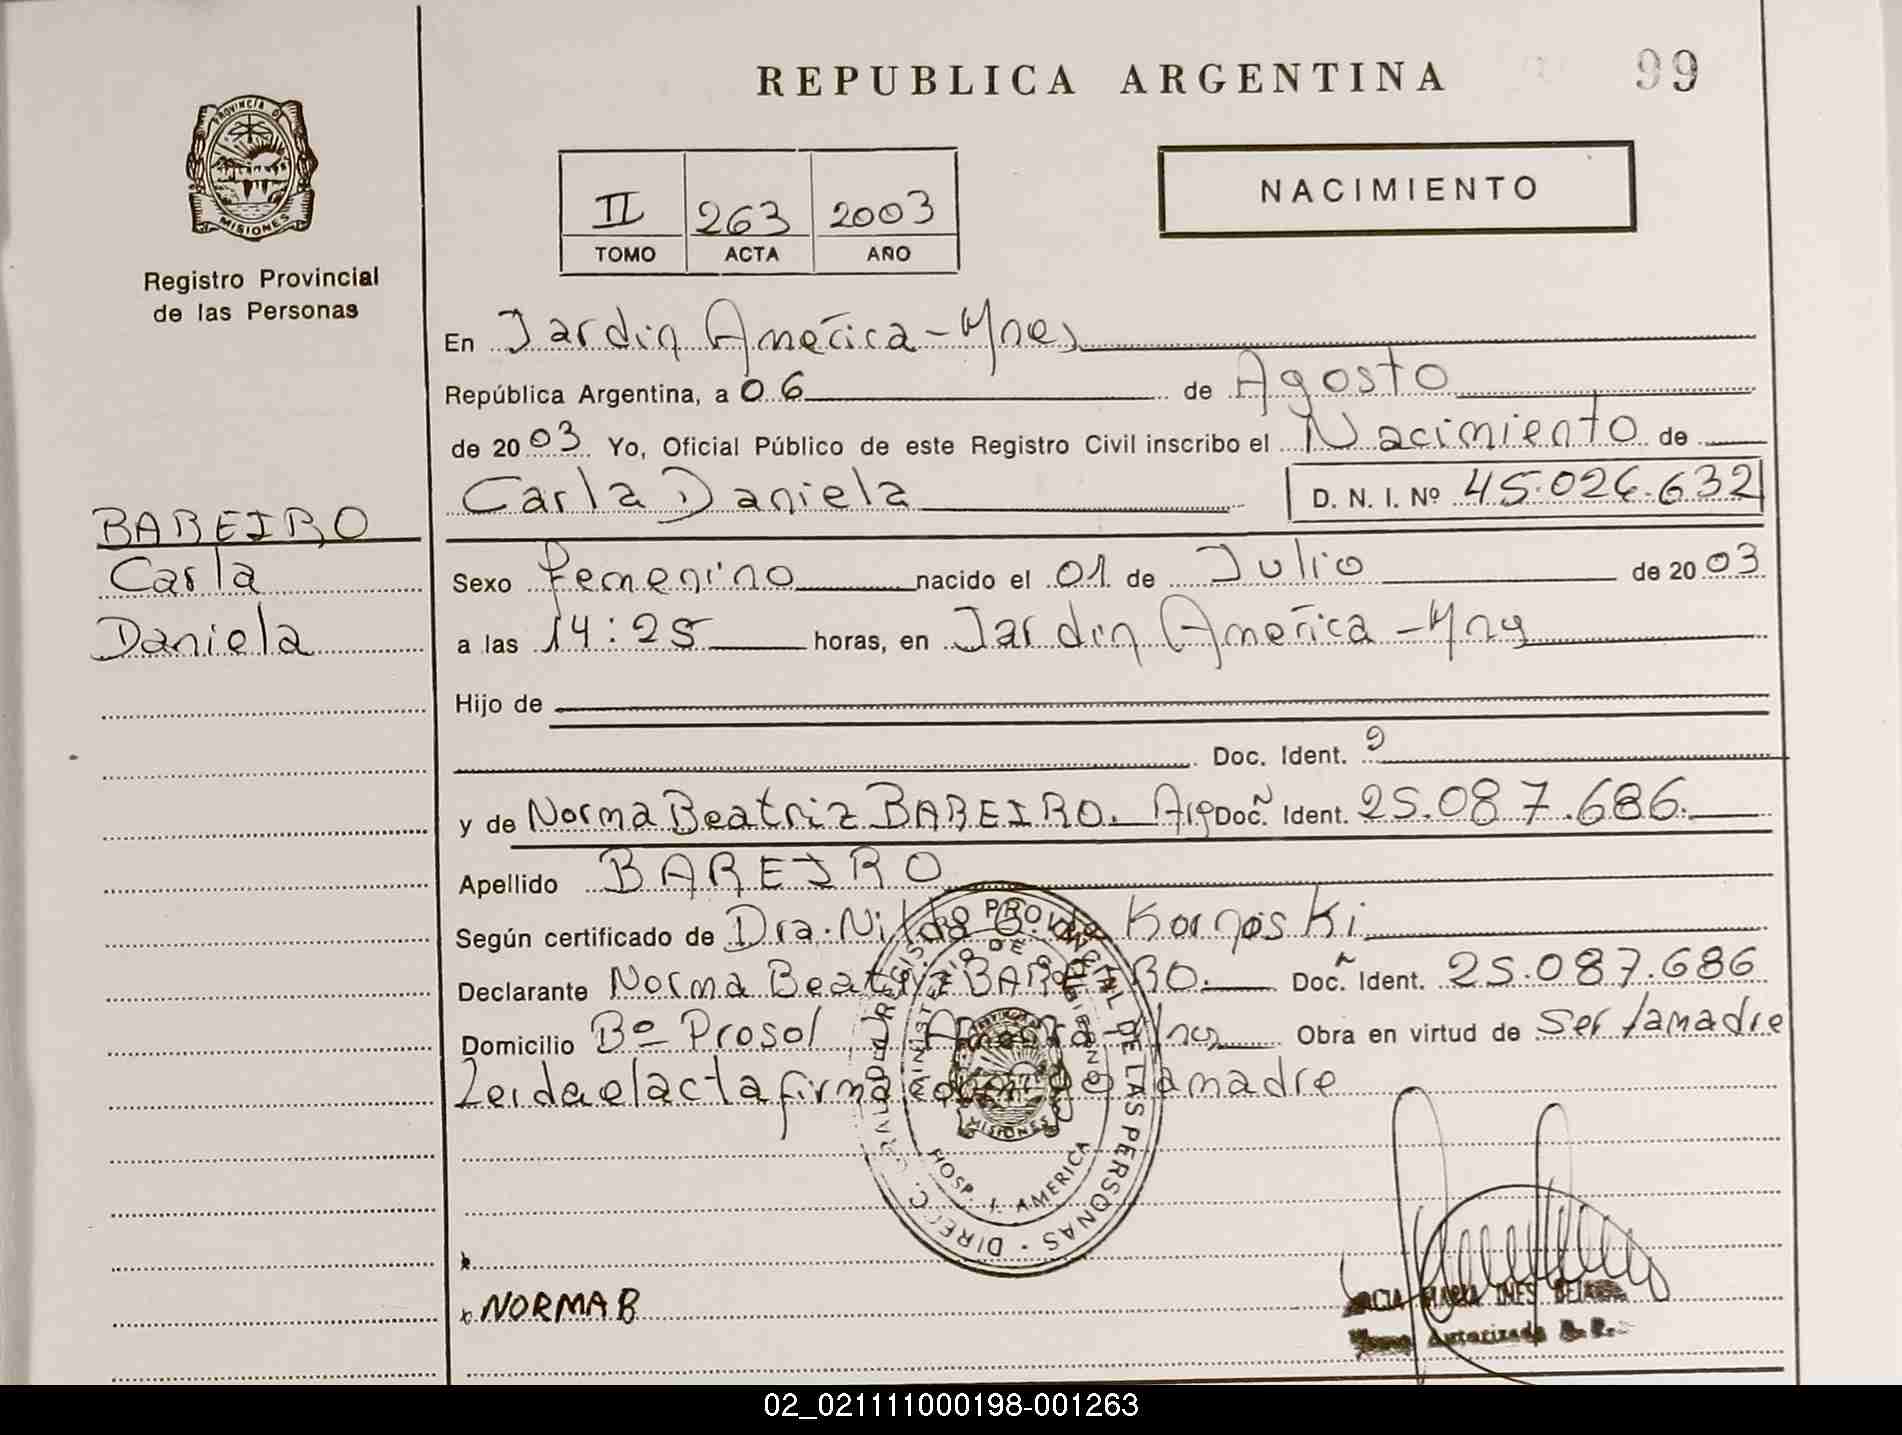 REPUBLICA ARGENTINA
99
PROVINCIA D
MISIONES
Registro Provincial
de las Personas
II 263 2003
TOMO ACTA AÑO
NACIMIENTO
En Jardin America - Mnes
República Argentina, a 06 de Agosto
de 2003 Yo, Oficial Público de este Registro Civil inscribo el Nacimiento de
Carla Daniela D. N. I. Nº 45.026.632
BAREIRO
Carla
Daniela
Sexo femenino nacido el 01 de Julio de 2003
a las 14:25 horas, en Jardin America - Mns
Hijo de
Doc. Ident.
y de Norma Beatriz BAREIRO. Arg Doc. Ident. 25.087.686.
Apellido BAREIRO
Según certificado de Dra. Nilda G. de Kornoski
Declarante Norma Beatriz BAREIRO. Doc. Ident. 25.087.686
Domicilio Bº Prosol J. America - Mns Obra en virtud de Ser la madre
Leida el acta firma la madre
DIRECC. GRAL. DEL REGISTRO PROVINCIAL DE LAS PERSONAS
MINISTERIO DE GOBIERNO
MISIONES
HOSP. J. AMERICA
NORMA B
MARIA INES
Autorizada
02_021111000198-001263